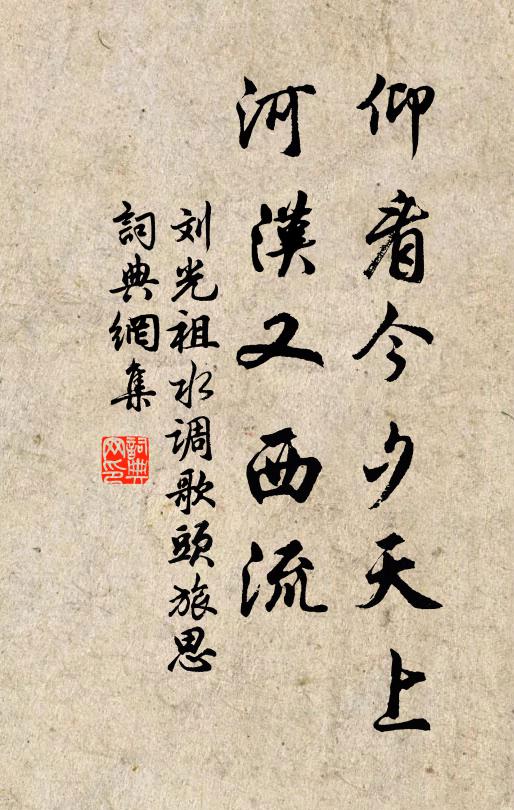 仰看今夕天上
河漢又西流
刘光祖水调歌頭旅思
詞典網集
詞典
网印